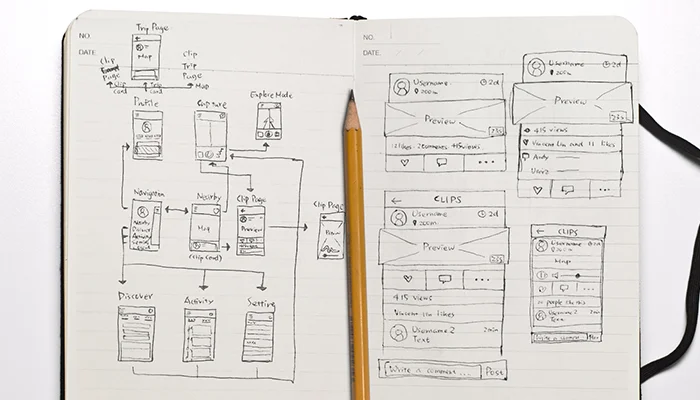 NO.
DATE.
Trip Page
Map
Clip
Page
Clip
Trip
Page
Clip
card
Trip
card
Map
Profile
Capture
Explore Mode
Navigation
Nearby
Clip Page
Clip Page
Nearby
Discover
Activity
Map
Preview
(Clip Card)
Discover
Activity
Setting
NO.
DATE.
Username
2d
200m
Preview
23s
11 likes 2 comments 415 views
Username
2d
200m
Preview
23s
415 views
Vincent Liu and 11 likes
Andy
CLIPS
Username
2d
200m
Preview
23s
415 views
Vincent Liu likes
Username 2
2min
Text
Write a comment...
Post
CLIPS
Username
200m
Map
11 people like this
Username 2
Text
Write a comment